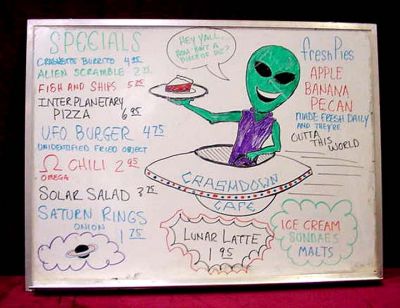 SPECIALS
CROISSETTE BURRITO 4.25
ALIEN SCRAMBLE
FISH AND SHIPS
INTERPLANETARY
PIZZA 6.95
UFO BURGER 4.75
UNIDENTIFIED FRIED OBJECT
Ω CHILI 2.95
OMEGA
SOLAR SALAD 3.25
SATURN RINGS
ONION 1.75
HEY Y'ALL,
HOW 'BOUT A
PIECE OF PIE?
fresh Pies
APPLE
BANANA
PECAN
MADE FRESH DAILY
AND THEY'RE
OUTTA
THIS WORLD
CRASHDOWN
CAFE
LUNAR LATTE
1.95
ICE CREAM
SUNDAES
MALTS